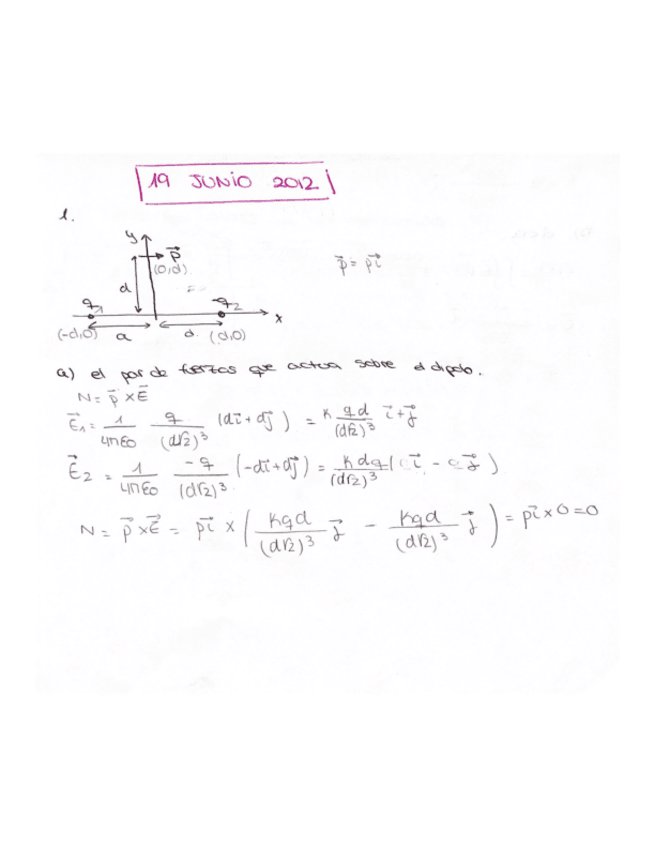 19 JUNIO 2012
1.
y
p⃗
p⃗ = p i⃗
(0,d)
d
q₁ -q₂
x
(-d,0) a d. (d,0)
a) el par de fuerzas que actua sobre el dipolo.
N = p⃗ × E⃗
E⃗₁ = 1/4πε₀ q/(d√2)³ (d i⃗ + d j⃗) = K qd/(d√2)³ i⃗ + j⃗
E⃗₂ = 1/4πε₀ -q/(d√2)³ (-d i⃗ + d j⃗) = K d q/(d√2)³ ( i⃗ - j⃗ )
N = p⃗ × E⃗ = p i⃗ × ( K q d/(d√2)³ j⃗ - K q d/(d√2)³ j⃗ ) = p i⃗ × 0 = 0